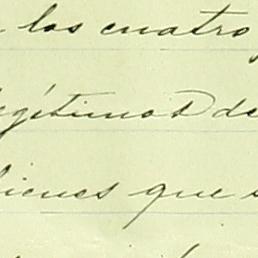 los cuatro
legítimos de
bienes que